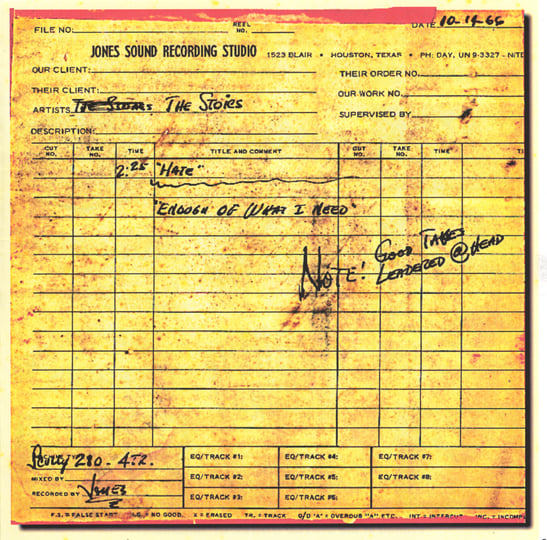 FILE NO: REEL NO. DATE 10-14-66
JONES SOUND RECORDING STUDIO 1523 BLAIR • HOUSTON, TEXAS • PH: DAY, UN 9-3327 - NITE
OUR CLIENT: THEIR ORDER NO.
THEIR CLIENT: OUR WORK NO.
ARTISTS The Stoics SUPERVISED BY
DESCRIPTION:
CUT NO. TAKE NO. TIME TITLE AND COMMENT CUT NO. TAKE NO. TIME
2:25 "HATE"
"ENOUGH OF WHAT I NEED"
NOTE! GOOD TAKES
LEADERED @ HEAD
280 - 4T2.
EQ/TRACK #1: EQ/TRACK #4: EQ/TRACK #7:
MIXED BY EQ/TRACK #2: EQ/TRACK #5: EQ/TRACK #8:
RECORDED BY JONES EQ/TRACK #3: EQ/TRACK #6:
F.S. = FALSE START N.G. = NO GOOD X = ERASED TR. = TRACK O/D "A" = OVERDUB "A" ETC. INT = INTERDUB INC. = INCOMP